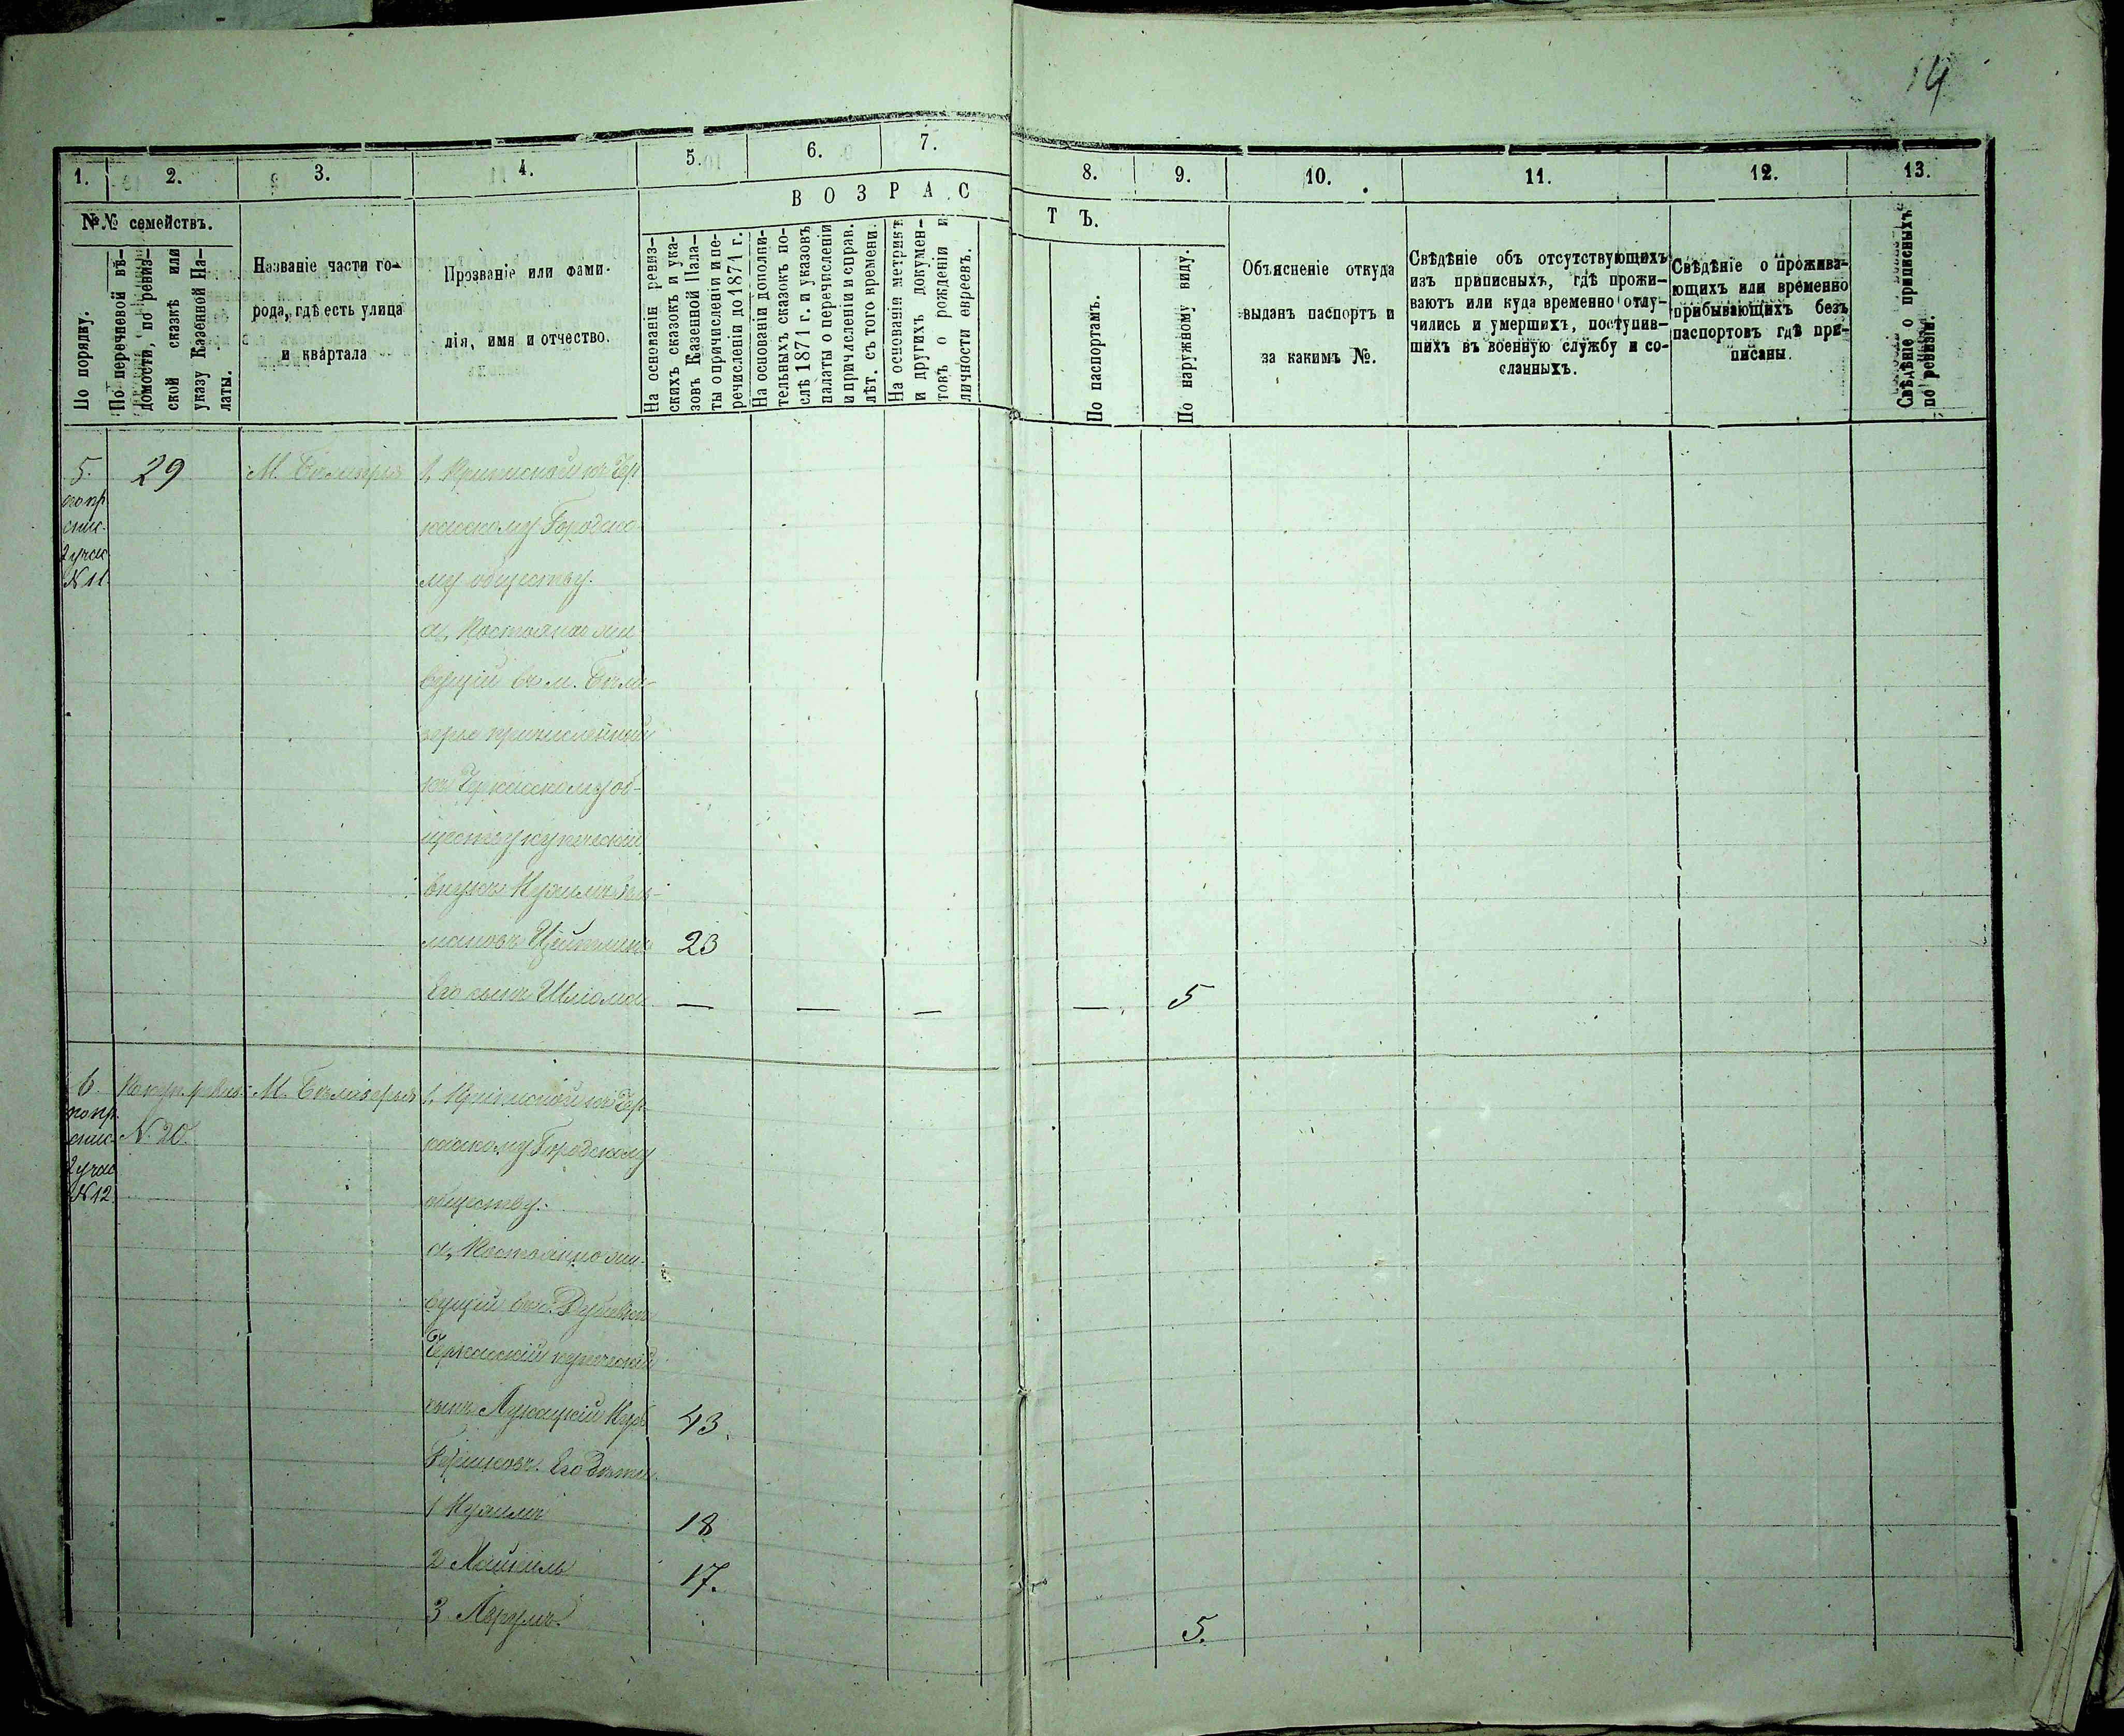 14
1. 2. 3. 4. 5. 6. 7. 8. 9. 10. 11. 12. 13.
ВОЗРАСТЪ.
№№ семействъ.
По порядку.
По перечневой вѣ-
домости, по ревиз-
ской сказкѣ или
указу Казенной Па-
латы.
Названіе части го-
рода, гдѣ есть улица
и квартала
Прозваніе или фами-
лія, имя и отчество.
На основаніи ревиз-
скихъ сказокъ и ука-
зовъ Казенной Пала-
ты о причисленіи и пе-
речисленіи до 1871 г.
На основаніи дополни-
тельныхъ сказокъ по-
слѣ 1871 г. и указовъ
палаты о перечисленіи
и причисленіи и справ.
лѣт. съ того времени.
На основаніи метрикъ
и другихъ докумен-
товъ о рожденіи и
личности евреевъ.
По паспортамъ.
По наружному виду.
Объясненіе откуда
выданъ паспортъ и
за какимъ №.
Свѣдѣніе объ отсутствующихъ
изъ приписныхъ, гдѣ прожи-
ваютъ или куда временно отлу-
чились и умершихъ, поступив-
шихъ въ военную службу и со-
сланныхъ.
Свѣдѣніе о прожива-
ющихъ или временно
прибывающихъ безъ
паспортовъ гдѣ при-
писаны.
Свѣдѣніе о приписныхъ
по ревизіи.
5. 29 М. Бѣлозерье 1, Приписной къ Чер
по пр.
спис.
2 учас
№ 11
касскому Городско
му обществу.
а, Постоянно жи
вущій въ м. Бѣло-
зерье причисленный
къ Черкасскому об-
ществу купеческій
внукъ
Цейтлинъ 23
Его сынъ Шліома — — — — 5
6. М. Бѣлозерье 1, Приписной къ Чер-
по пр.
спис. № 20.
2 учас
№ 12
касскому Городскому
обществу.
а, Постоянно жи-
вущій въ с.
Черкасскій купеческій
сынъ 43.
Его дѣти
1 18
2 17.
3 5.